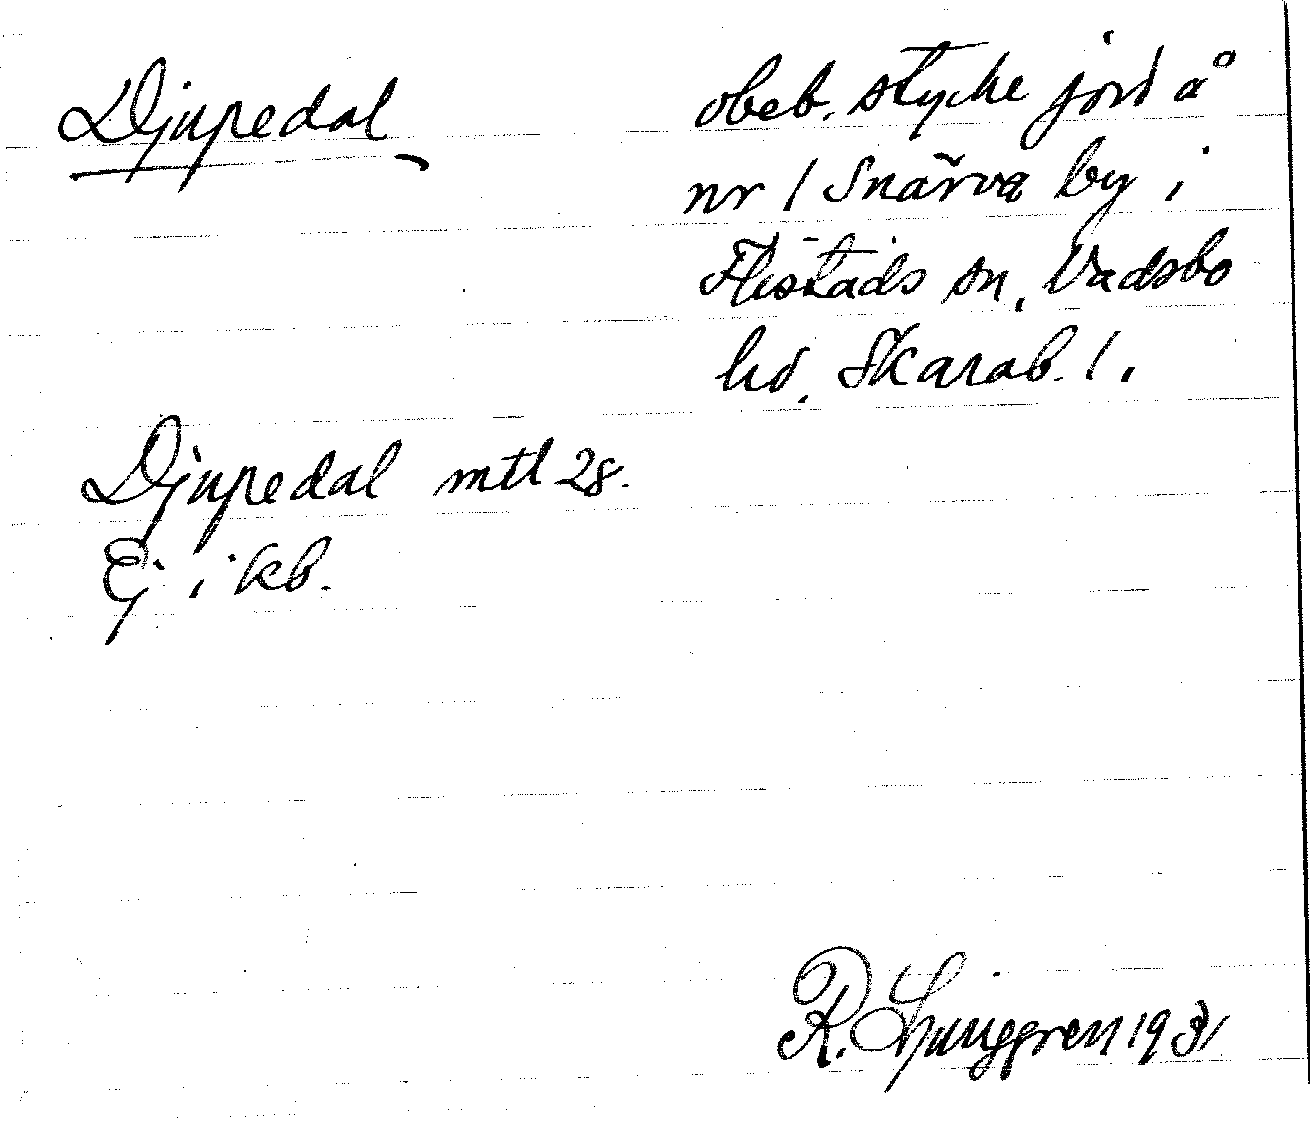 Djupedal
obeb. stycke jord å
nr 1 Snärva by i
Flistads sn, Vadsbo
hd, Skarab. l.
Djupedal mtl 28.
Ej i kb.
R. Ljunggren 1931